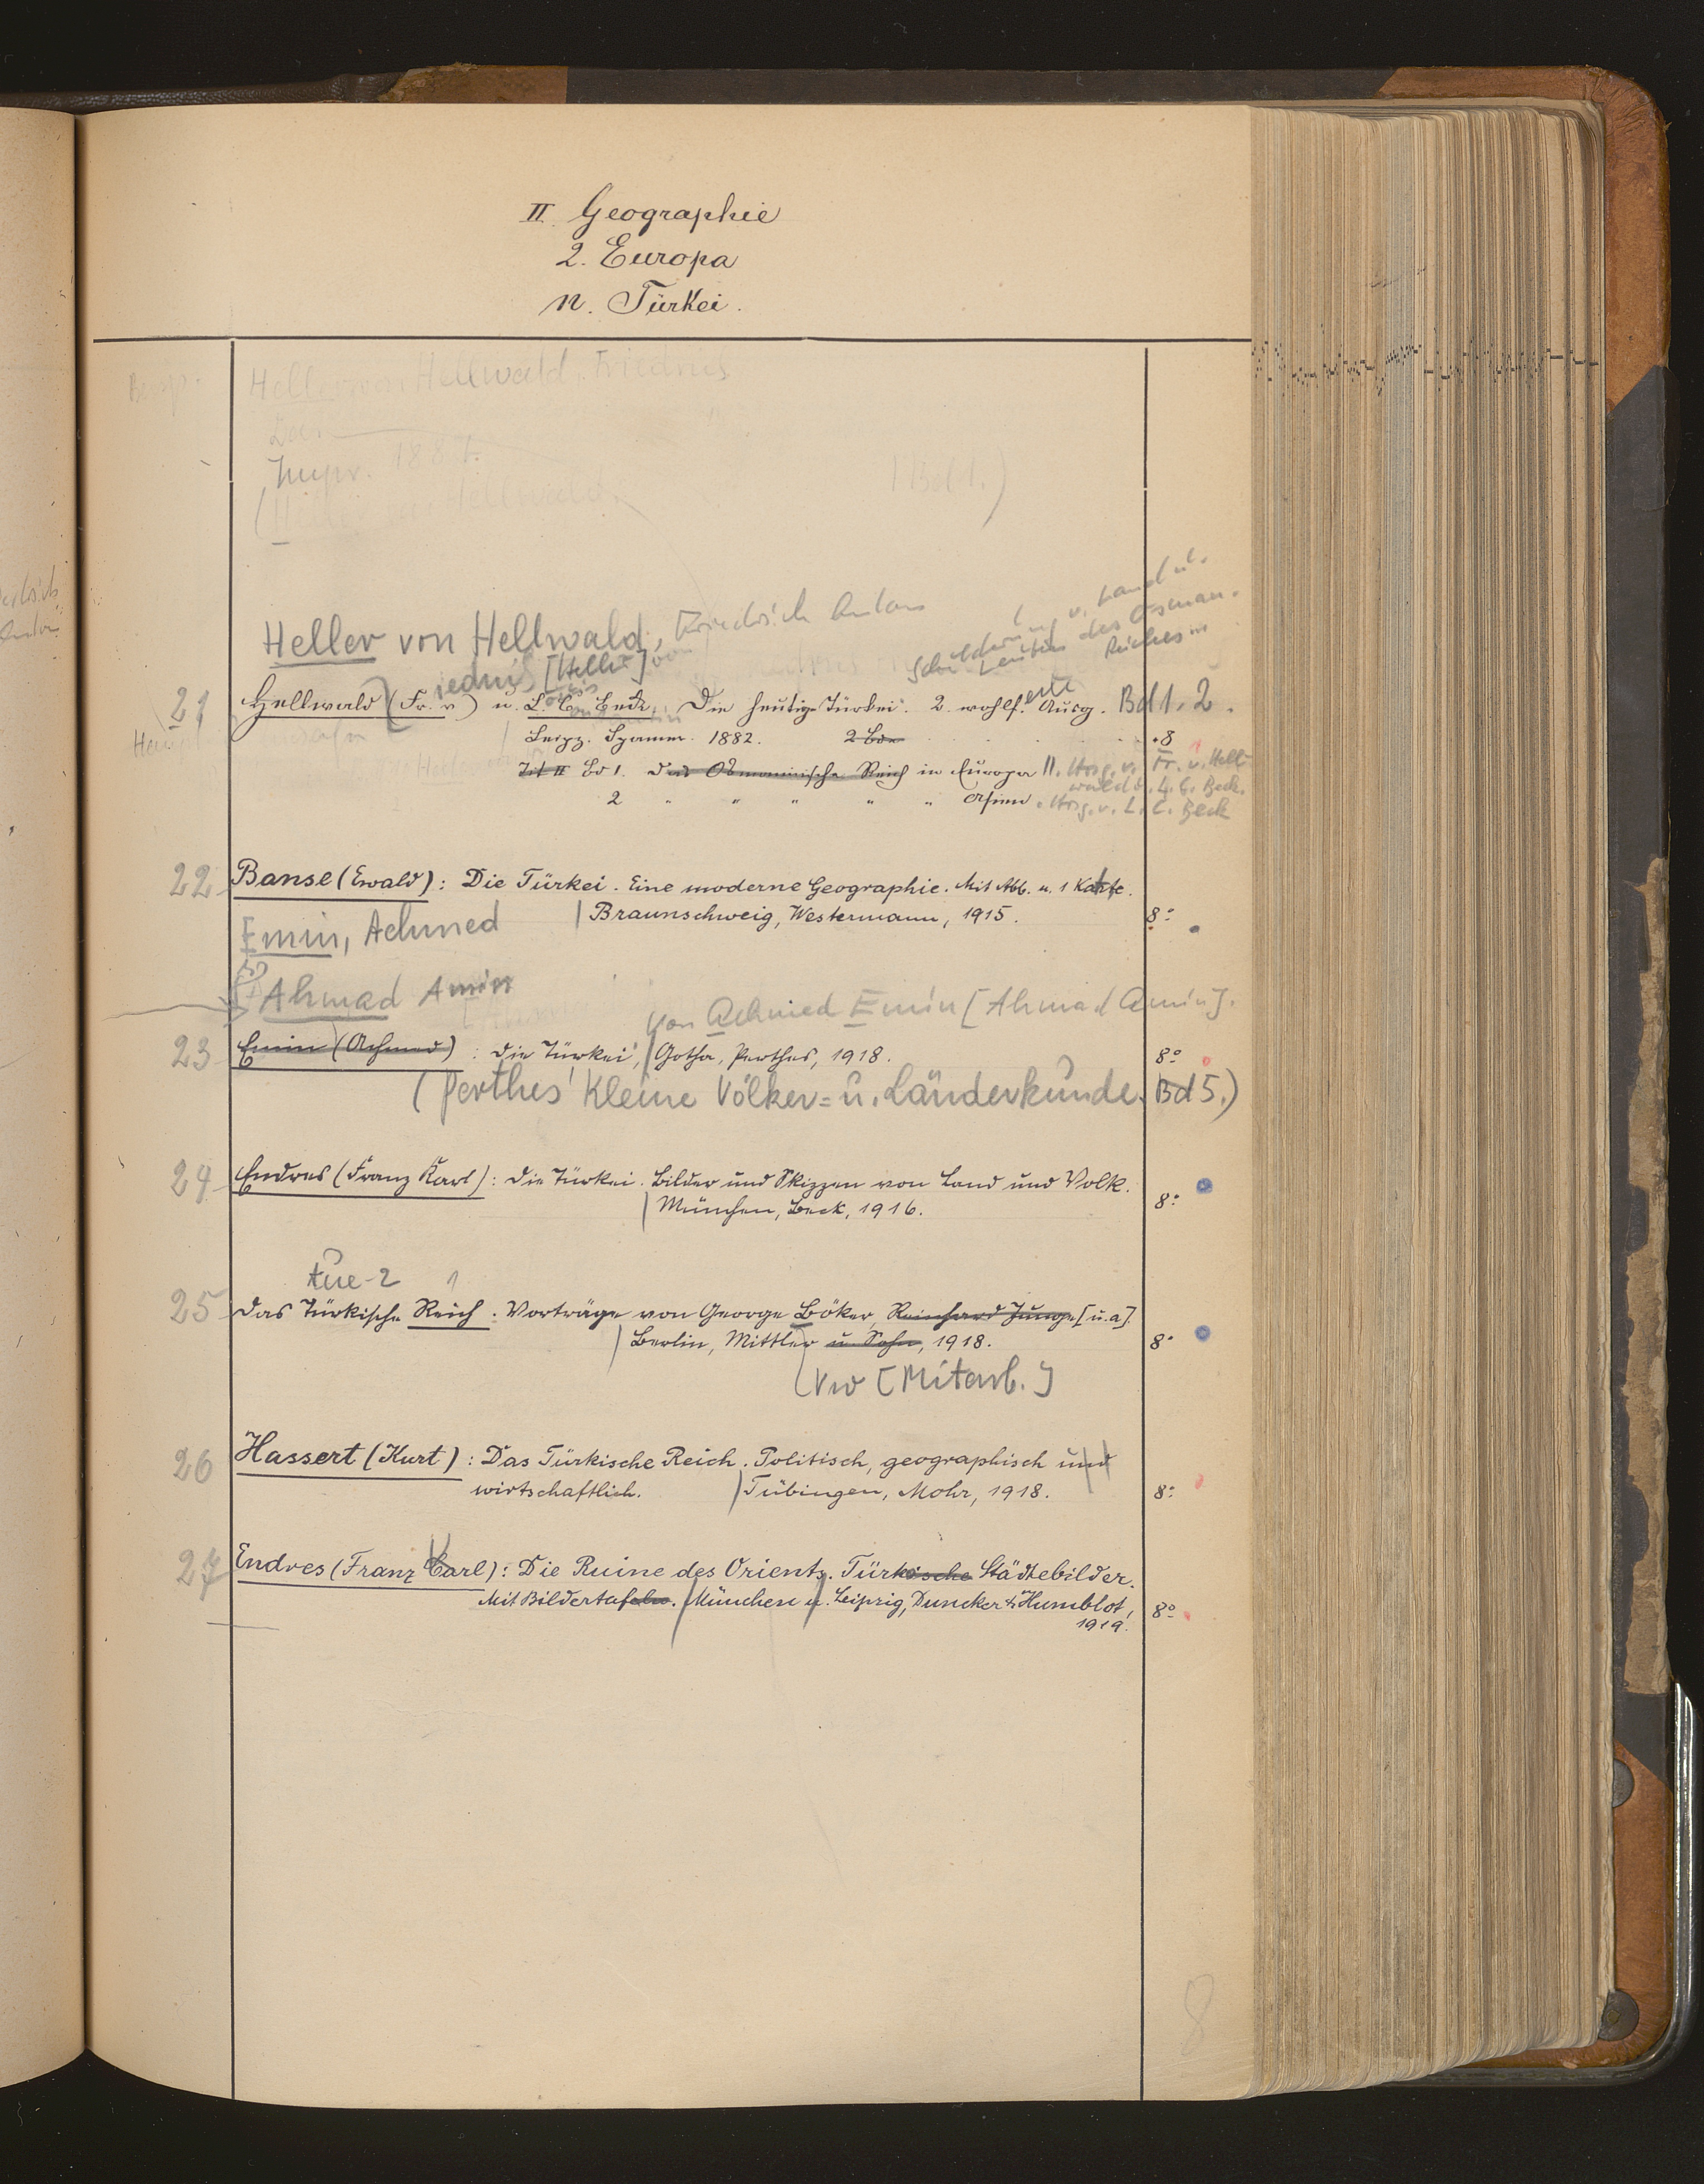 II. Geographie
2. Europa
n. Türkei.
Heller von Hellwald, Friedrich
Impr. 1887.
Bd 1.)
Heller von Hellwald, Friedrich Anton
Schilderung v. Land u.
Leuten des Osman.
Reiches in
21 Hellwald (Fr. v.) u. L. C. Beck, Die heutige Türkei. 2. wohlf. Ausg. Bd 1. 2.
Leipz. Spamer. 1882. 2 Bde. 8
Tit II Bd 1. Das Osmanische Reich in Europa II. Hrsg. v. Fr. v. Hell-
wald u. L. C. Beck.
2 " " " " " Asien. Hrsg. v. L. C. Beck
22 Banse (Ewald): Die Türkei. Eine moderne Geographie. Mit Abb. u. 1 Karte.
Braunschweig, Westermann, 1915. 8°
Emin, Achmed
Ahmad Amin
von Achmed Emin [Ahmad Amin].
23 Emin (Achmed): Die Türkei, Gotha, Perthes, 1918. 8°
(Perthes' Kleine Völker= u. Länderkunde. Bd 5.)
24 Endres (Franz Karl): Die Türkei. Bilder und Skizzen von Land und Volk.
München, Beck, 1916. 8°
Tue-2 1
25 Das Türkische Reich: Vorträge von George Böker, Reinhard Junge [u.a].
Berlin, Mittler u. Sohn, 1918. 8°
(Vw [Mitarb.]
26 Hassert (Kurt): Das Türkische Reich. Politisch, geographisch und
wirtschaftlich. Tübingen, Mohr, 1918. 8°
27 Endres (Franz Carl): Die Ruine des Orients. Türkische Städtebilder.
Mit Bildertafeln. München u. Leipzig, Duncker & Humblot,
1919. 8°
8